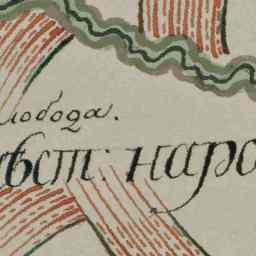 лобода.
ѣст: наро